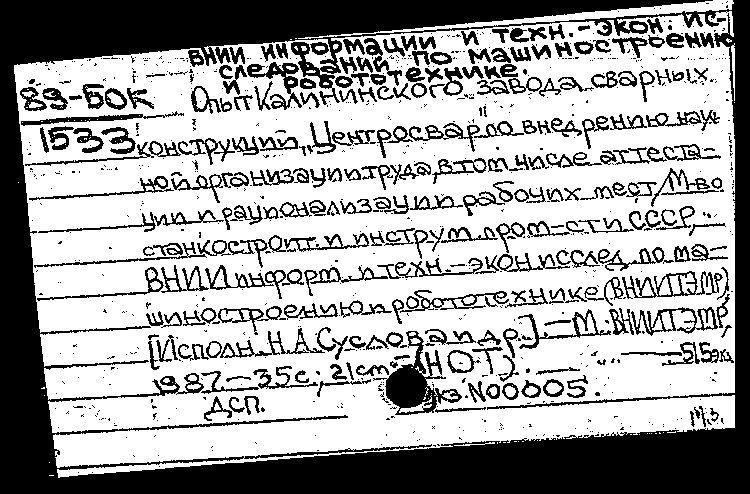 ВНИИ информации и техн.-экон. ис-
следований по машиностроению
и робототехнике.
89-БОК
1533
Опыт Калининского завода сварных
конструкций „Центросвар" по внедрению науч-
ной организации труда, в том числе аттеста-
ции и рационализации рабочих мест / М-во
станкостроит. и инструм. пром-сти СССР,
ВНИИ информ. и техн.-экон исслед. по ма-
шиностроению и робототехнике (ВНИИТЭМР)
[Исполн. Н.А. Суслова и др.]. — М.: ВНИИТЭМР,
1987 — 35 с.; 21 см. — (НОТ).
515 экз.
ДСП.
Экз. N00005.
М.З.